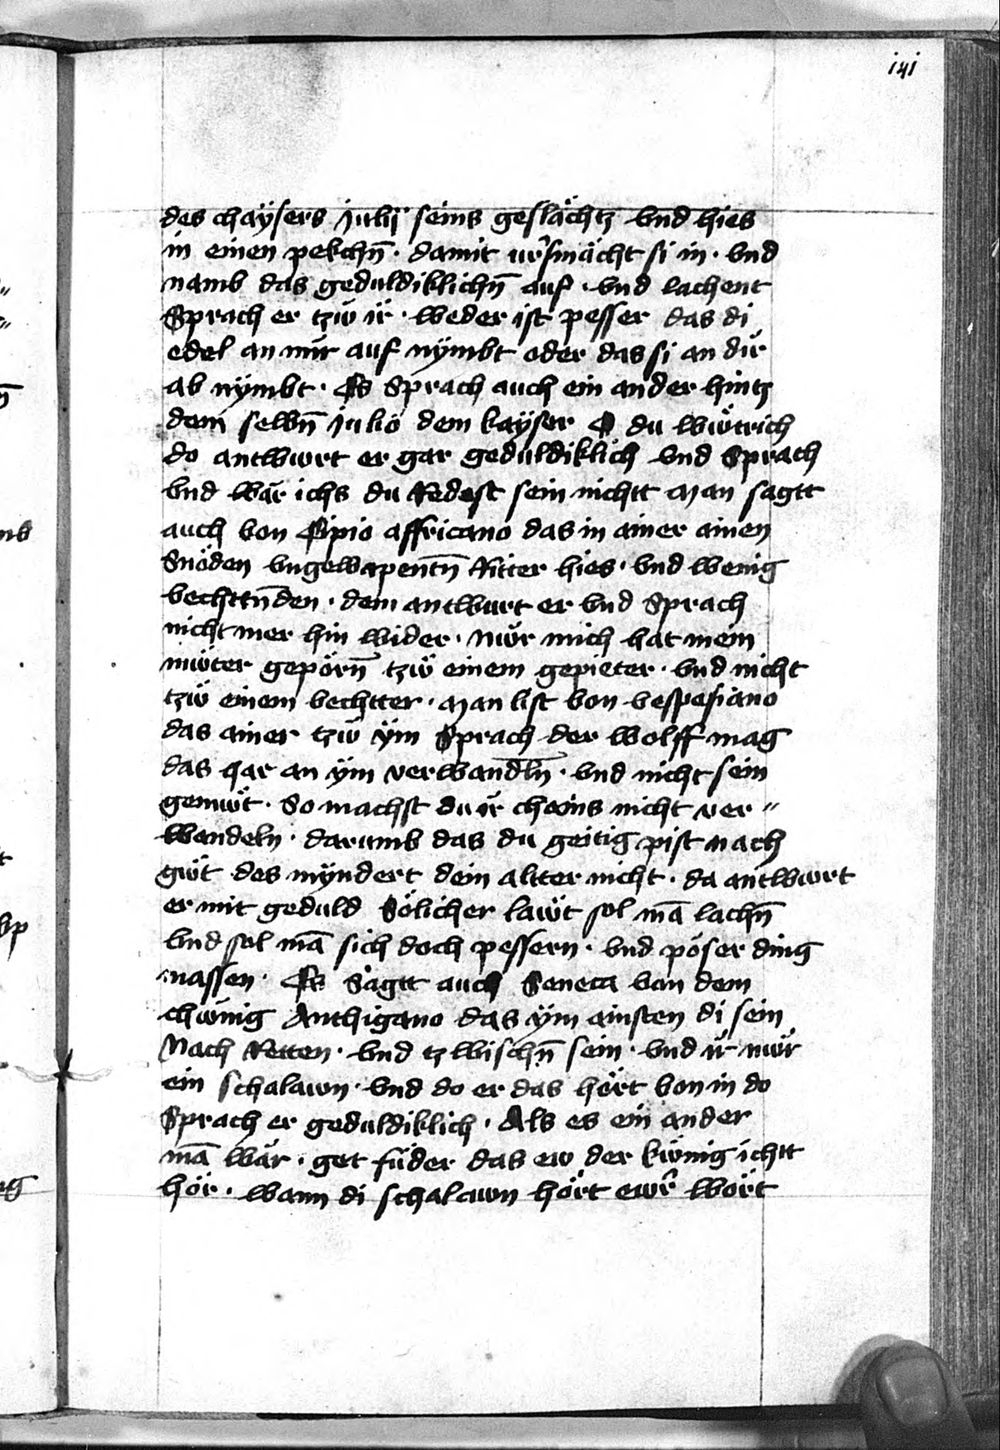 141
des chaÿsers Julij seins geslächtz vnd hies
in einen pekchn̄ · damit ur̄smächt si in · vnd
namb das geduldiklichn̄ auf · vnd lachent
Sprach er tzw ir · weder ist pesser das di
edel an mir auf nÿmbt oder das si an dir
ab nÿmbt · Es Sprach auch ein ander hintz
dem selbn̄ Julio dem kaÿser O du wüetrich
do antwurt er gar geduldiklich vnd Sprach
vnd wär ichs du Redest sein nichtt Man sagtt
auch von Cipio affricano das in ainer ainen
Snöden vngewapentn̄ Ritter hies · vnd wenig
vechttn̄den · dem antwurt er vnd Sprach
nicht mer hin wider · nwr mich hat mein
mwter geporn̄ tzw einem gepieter · vnd nicht
tzw einem vechtter · Man list von vespesiano
das ainer tzw ÿm Sprach der wolff mag
das har an ÿm verwandln̄ · vnd nicht sein
gemwt · So machst du ir chains nicht ver //
wandeln · darumb das du geitig pist nach
gwt des mÿndert dein altter nicht · da antwurt
er mit geduld Sölicher lawt sol mā lachn̄
vnd sol mā sich doch pessern · vnd pöser ding
massen · Es Sagtt auch Seneca von dem
chwnig Anthigano das ÿm ainsten di sein
Nach Retten · vnd tzwischn̄ sein · vnd ir nwr
ein schalawn · vnd do er das hört von in do
Sprach er geduldiklich · Als es ein ander
mā wär · get füder das ew der kwnig ichtt
hör · wann di schalawn hört ewr̄ wort